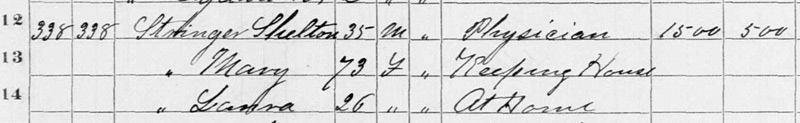 12 338 338 Stringer Shelton 35 M " Physician 1500 500
13 " Mary 73 F " Keeping House
14 " Laura 26 " " At Home